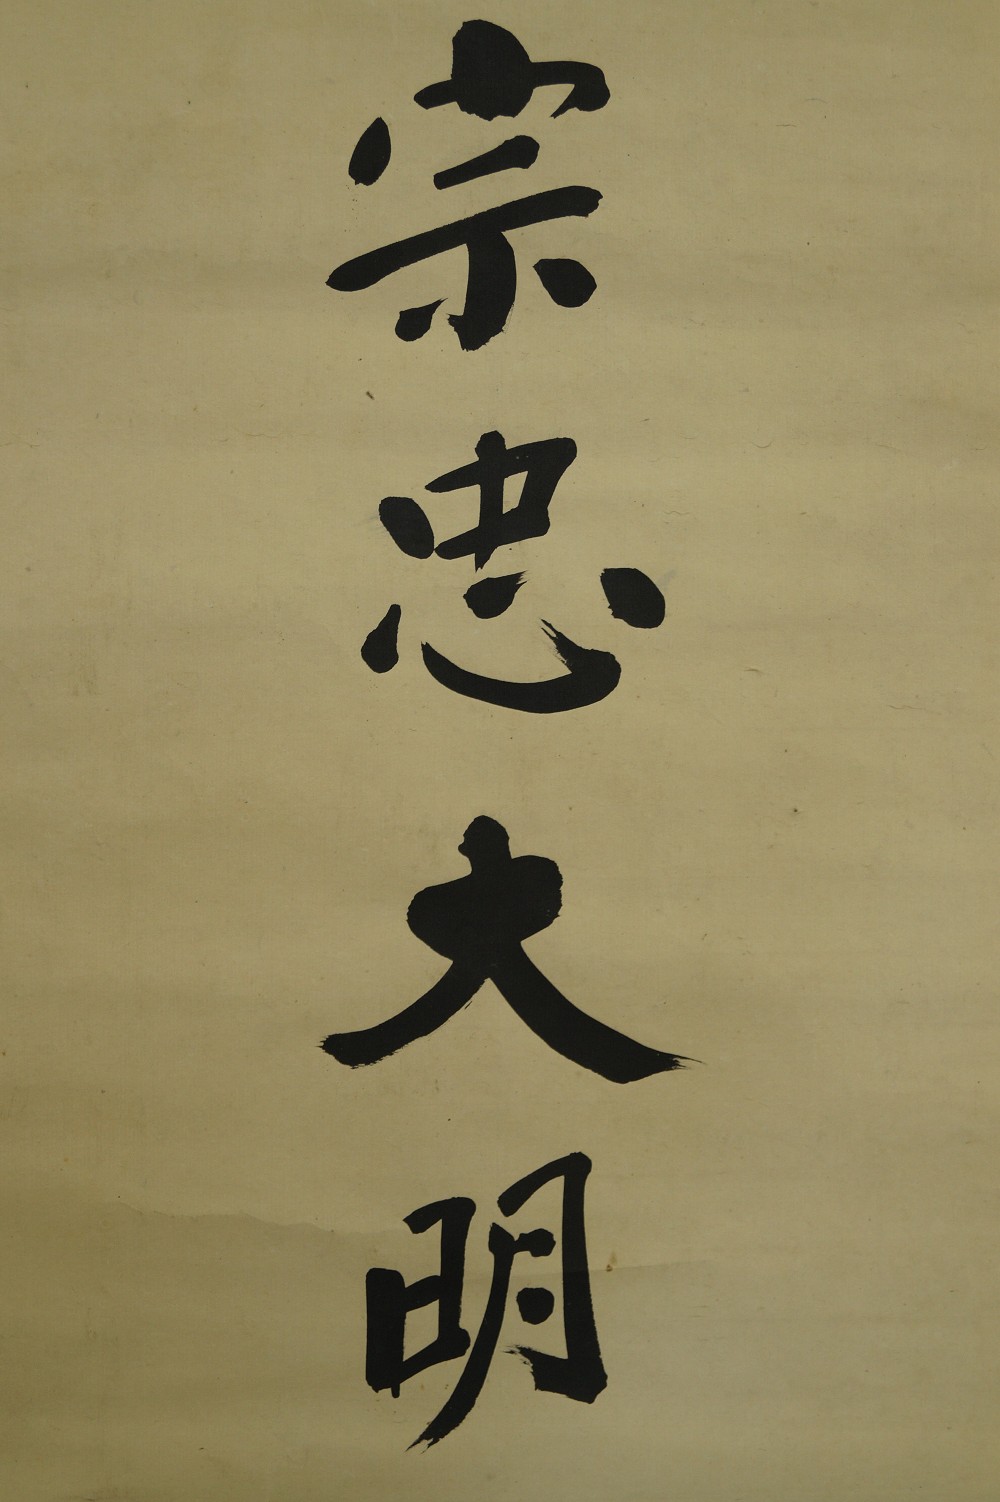 宗忠大明